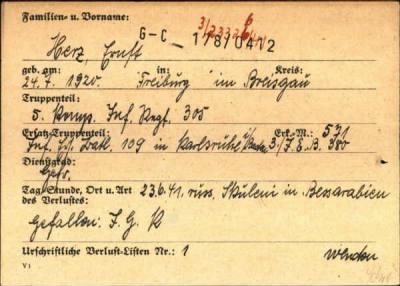 Familien- u. Vorname:
G-C 178/0412
Herz, Ernst
geb. am: in: Kreis:
24.7.1920. Freiburg im Breisgau
Truppenteil:
5. Komp. Inf. Regt. 305
Ersatz-Truppenteil: Erk.-M.: 571
Inf. Ers. Batl. 109 in Karlsruhe 3./J.E.B. 380
Dienstgrad:
Gefr.
Tag, Stunde, Ort u. Art 23.6.41. russ. Skuleni in Bessarabien
des Verlustes:
Gefallen: I.G. K
Urschriftliche Verlust-Listen Nr.: 1
Wenden
V1